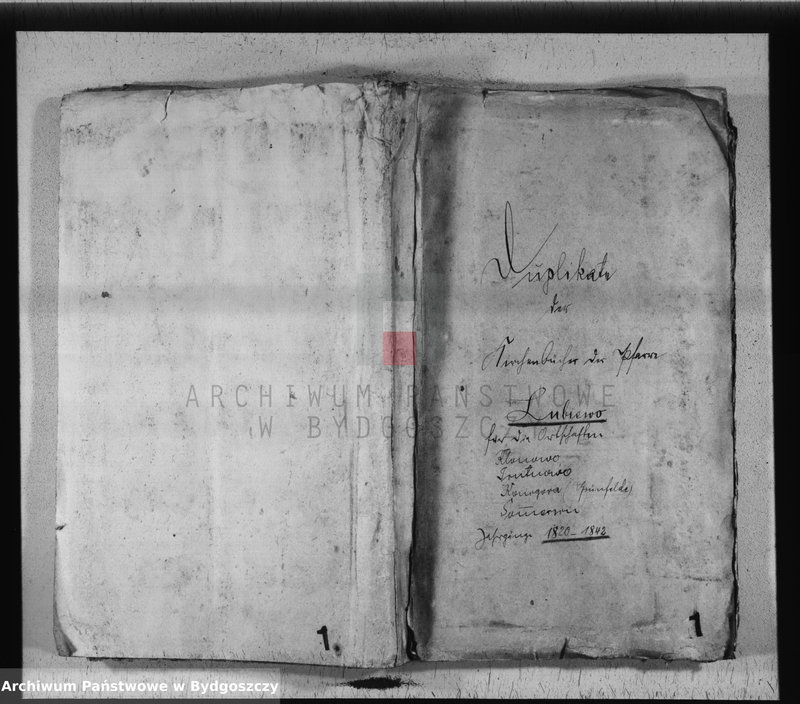 Duplikate
der
Kirchenbücher der Pfarre
Lubiewo
für die Ortschaften
Klonowo
Trutnowo
Konogora (Grünfelde)
Jahrgänge 1820-1842
ARCHIWUM PAŃSTWOWE
W BYDGOSZCZY
1
1
Archiwum Państwowe w Bydgoszczy